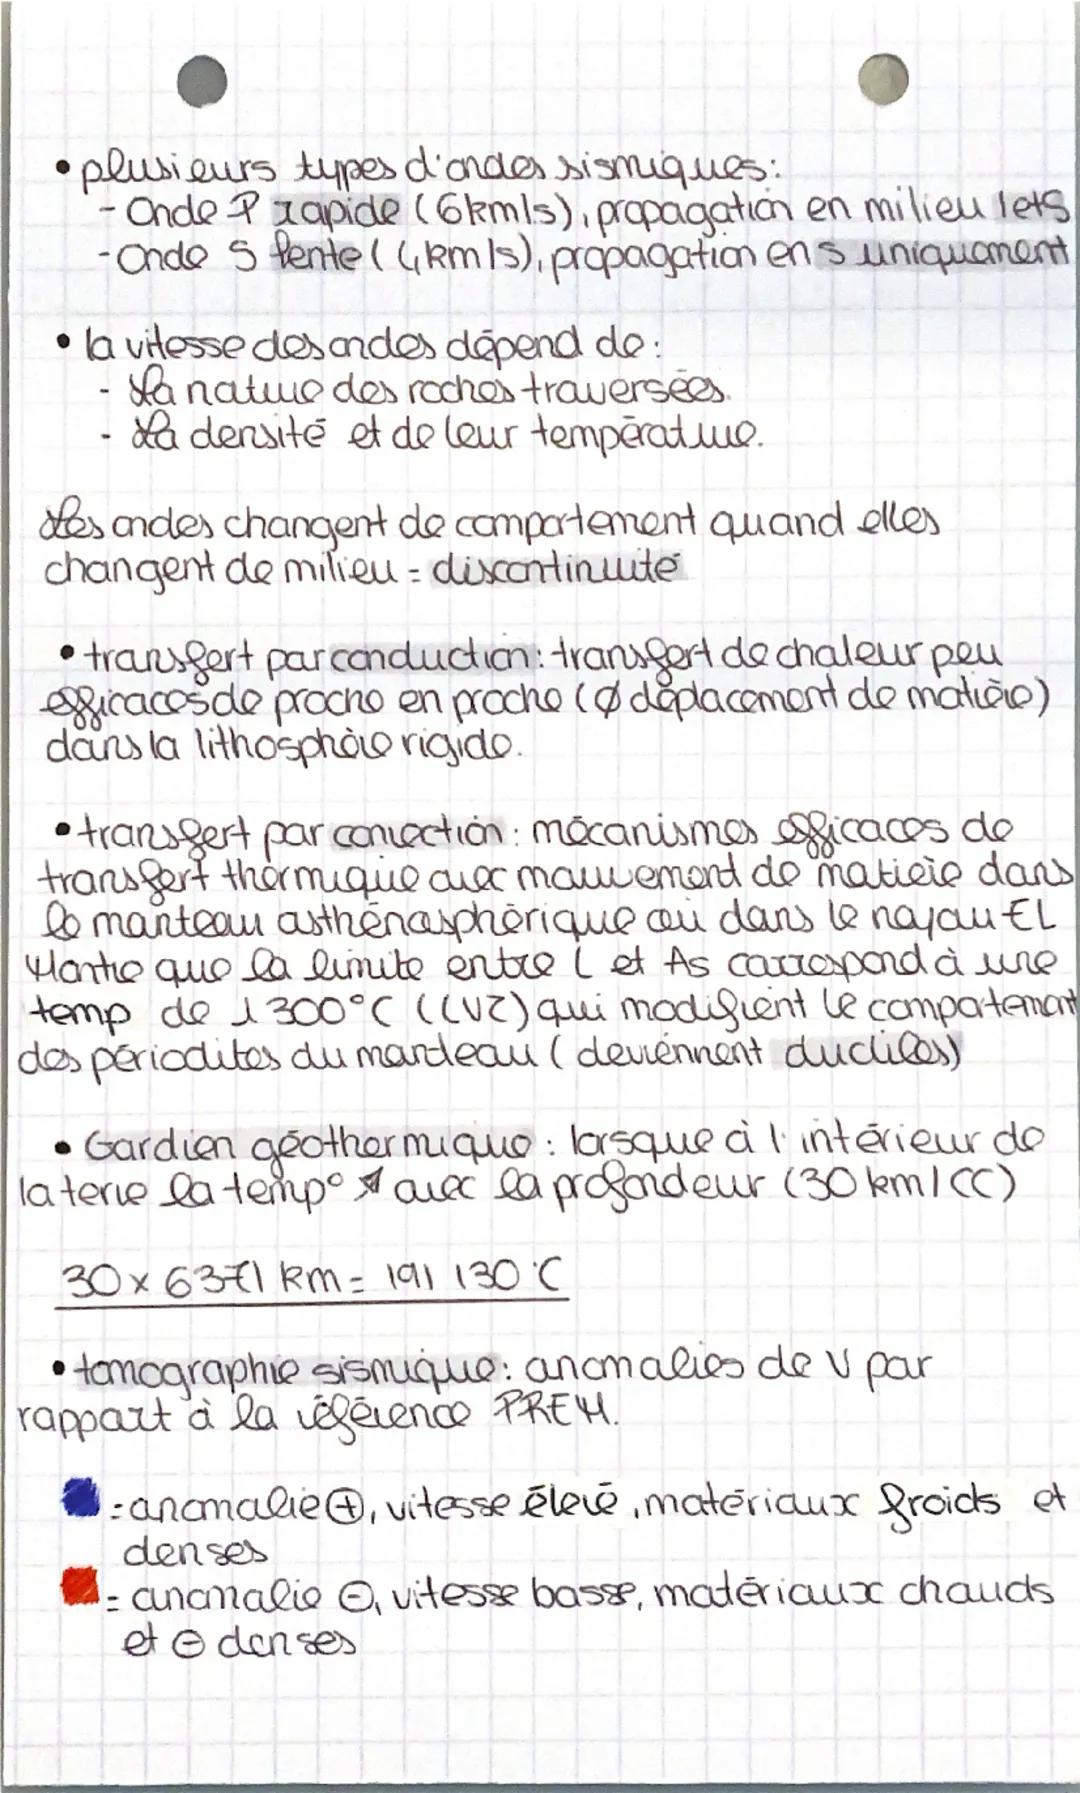 • plusieurs types d'ondes sismiques:
- Onde P rapide (6km/s), propagation en milieu l et S
- Onde S lente (4km/s), propagation en S uniquement
• la vitesse des ondes dépend de:
- La nature des roches traversées.
- La densité et de leur température.
Les ondes changent de comportement quand elles
changent de milieu = discontinuité
• transfert par conduction: transfert de chaleur peu
efficaces de proche en proche (Ø déplacement de matière)
dans la lithosphère rigide.
• transfert par convection: mécanismes efficaces de
transfert thermique avec mouvement de matière dans
le manteau asthénosphérique ou dans le noyau EL
Montre que la limite entre L et As correspond à une
temp de 1300°C (LVZ) qui modifient le comportement
des péridotites du manteau (deviennent ductiles)
• Gardien géothermique: lorsque à l'intérieur de
la terre la temp° ↗ avec la profondeur (30km/CC)
30 x 6371 km = 191 130°C
• tomographie sismique: anomalies de V par
rapport à la référence PREM.
= anomalie ⊕, vitesse élevé, matériaux froids et
denses
= anomalie ⊖, vitesse basse, matériaux chauds
et ⊖ denses